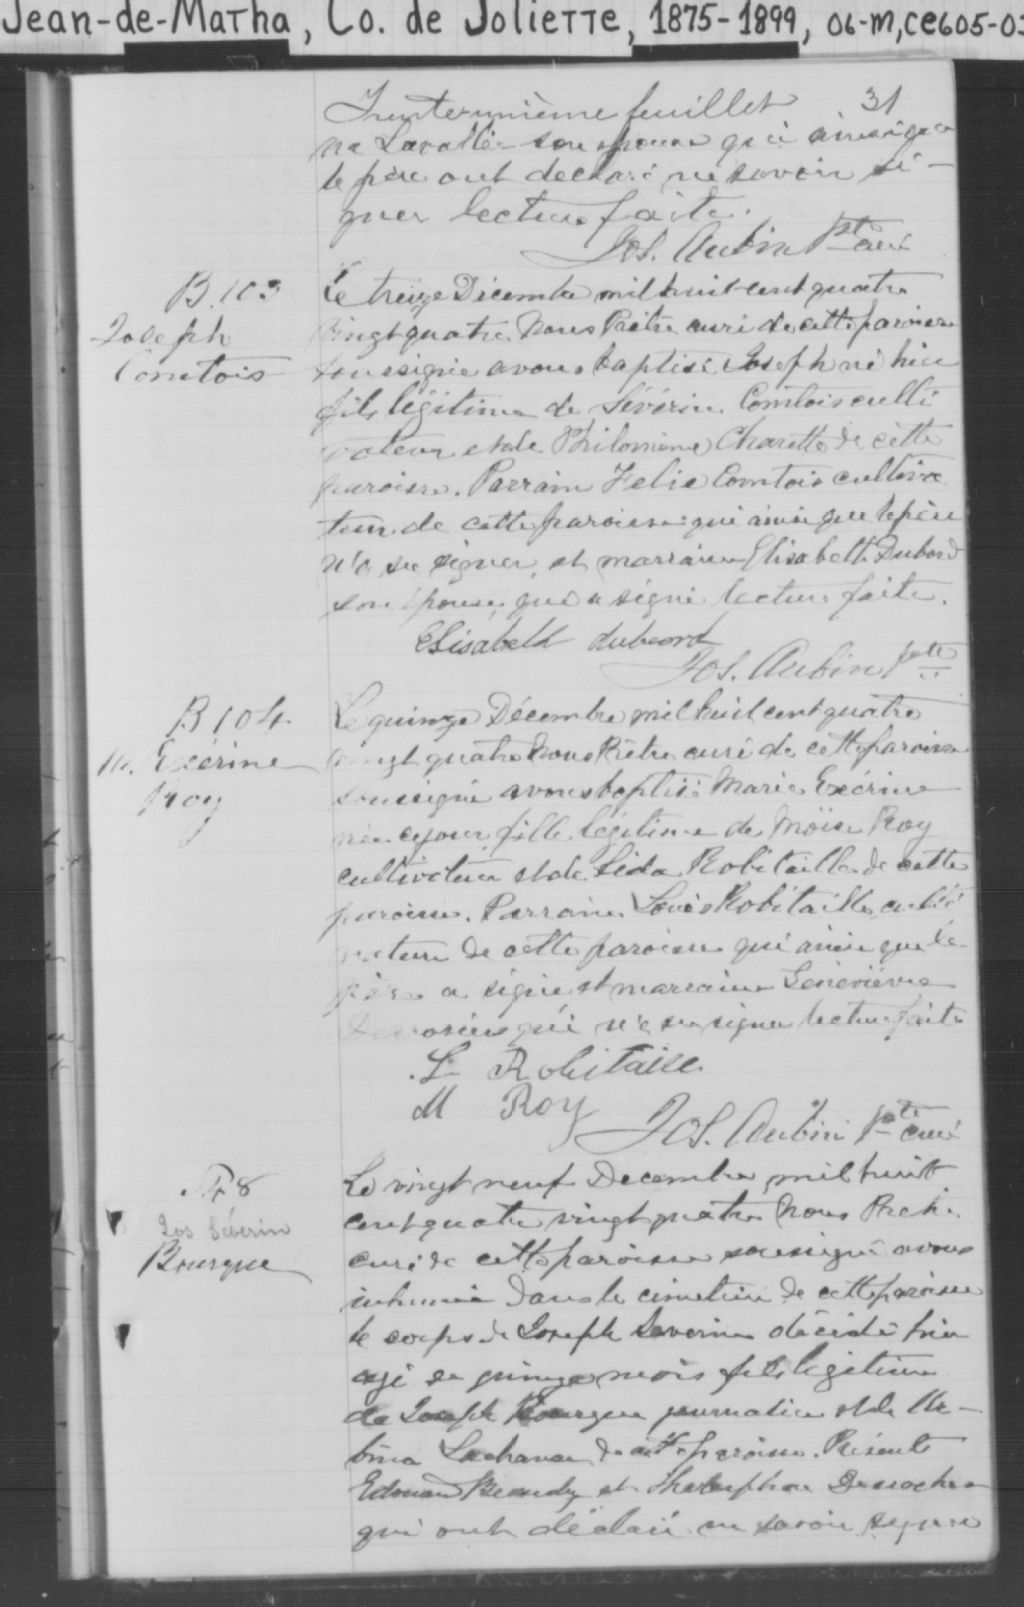 Jean-de-Matha, Co. de Joliette, 1875-1899, 06-M, CE605-03
Trenteunième feuillet 31
na Lavallée son épouse qui ainsi que
le père ont déclaré ne savoir si-
gner lecture faite.
Jos. Aubin Ptre curé
B. 103
Joseph
Comtois
Le treize Décembre mil huit cent quatre
vingt quatre Nous Prêtre curé de cette paroisse
soussigné avons baptisé Joseph né hier
fils légitime de Sévérin Comtois culti
vateur et de Philomène Charette de cette
paroisse. Parrain Felix Comtois cultiva
teur de cette paroisse qui ainsi que le père
n'a su signer, et marraine Elisabeth Dubord
son épouse, qui a signé lecture faite.
Elisabeth dubeord
Jos. Aubin Ptre
B 104
M. Exérine
Roy
Le quinze Décembre mil huit cent quatre
vingt quatre Nous Prêtre curé de cette paroisse
soussigné avons baptisé Marie Exérine
née ce jour, fille légitime de Moïse Roy
cultivateur et de Léda Robitaille de cette
paroisse. Parrain Louis Robitaille culti
vateur de cette paroisse qui ainsi que le
père a signé et marraine Geneviève
Desrosiers qui n'a su signer lecture faite
L Robitaille
M Roy
Jos. Aubin Ptre curé
8
Jos Séverin
Bourque
Le vingt neuf Decembre mil huit
cent quatre vingt quatre Nous Prêtre
curé de cette paroisse soussigné avons
inhumé dans le cimetière de cette paroisse
le corps de Joseph Severin décédé hier
agé de quinze mois fils légitime
de Joseph Bourque journalier et de
Lachance de cette paroisse. Présents
Edouard Beaudry et Desroches
qui ont déclaré ne savoir signer